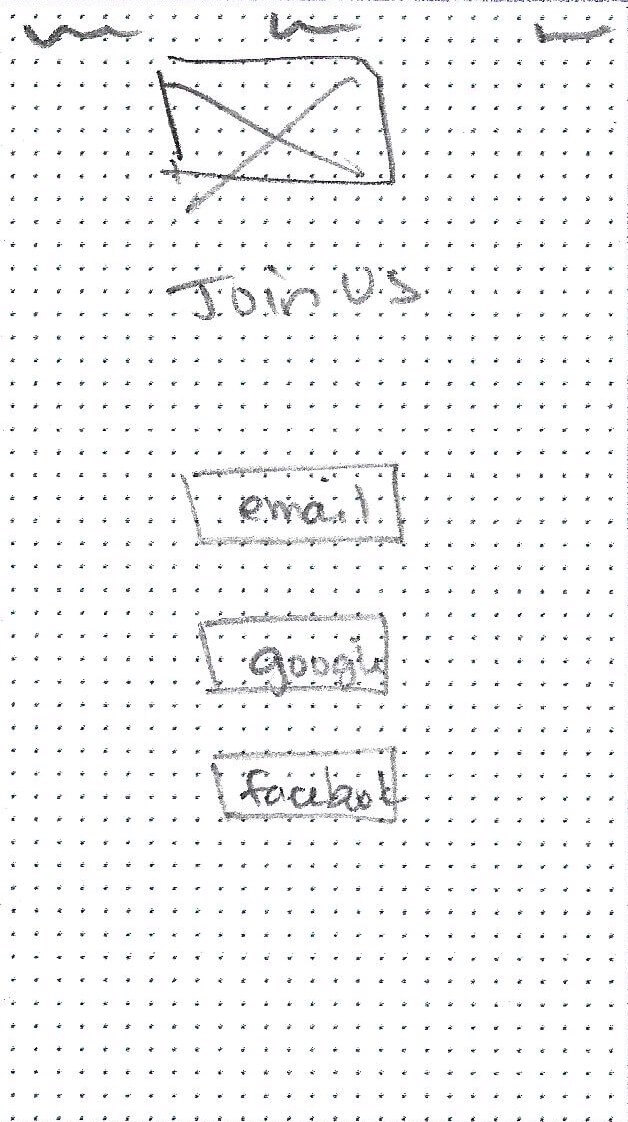 Join Us
email
google
facebook